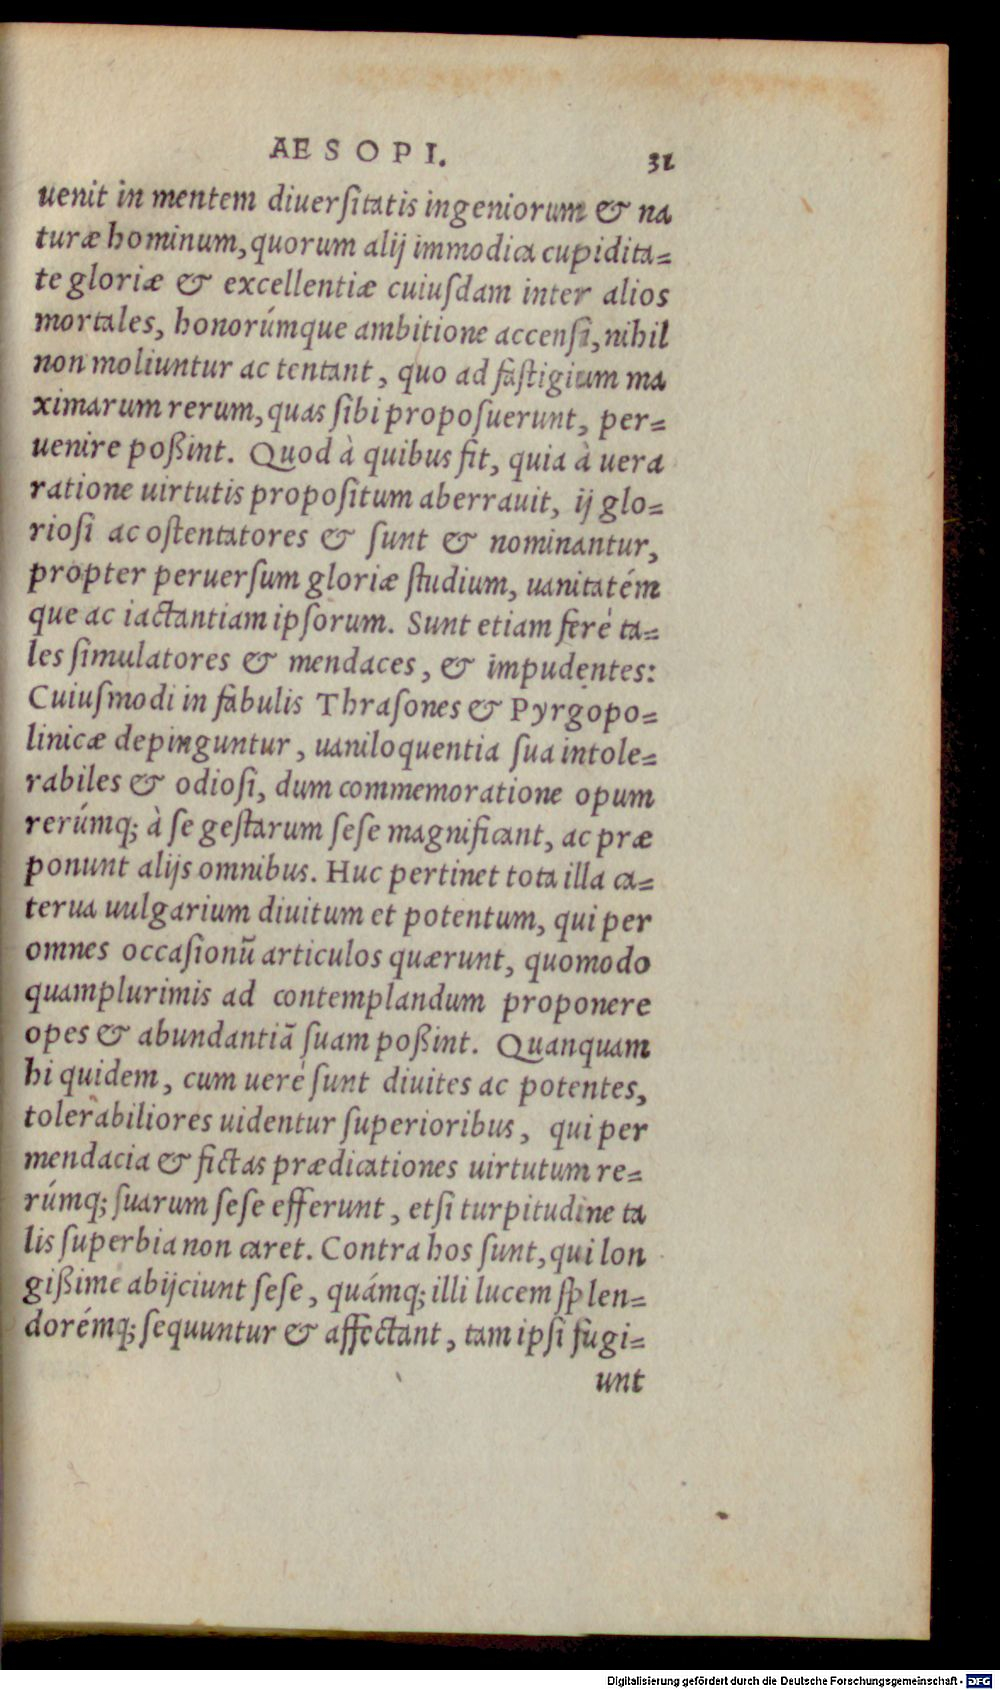 AESOPI. 31
uenit in mentem diuersitatis ingeniorum & na
turæ hominum, quorum alij immodica cupidita=
te gloriæ & excellentiæ cuiusdam inter alios
mortales, honorúmque ambitione accensi, nihil
non moliuntur ac tentant, quo ad fastigium ma
ximarum rerum, quas sibi proposuerunt, per=
uenire poßint. Quod à quibus fit, quia à uera
ratione uirtutis propositum aberrauit, ij glo=
riosi ac ostentatores & sunt & nominantur,
propter peruersum gloriæ studium, uanitatém
que ac iactantiam ipsorum. Sunt etiam ferè ta=
les simulatores & mendaces, & impudentes:
Cuiusmodi in fabulis Thrasones & Pyrgopo=
linicæ depinguntur, uaniloquentia sua intole=
rabiles & odiosi, dum commemoratione opum
rerúmq; à se gestarum sese magnificant, ac præ
ponunt alijs omnibus. Huc pertinet tota illa ca=
terua uulgarium diuitum et potentum, qui per
omnes occasionũ articulos quærunt, quomodo
quamplurimis ad contemplandum proponere
opes & abundantiã suam poßint. Quanquam
hi quidem, cum uerè sunt diuites ac potentes,
tolerabiliores uidentur superioribus, qui per
mendacia & fictas prædicationes uirtutum re=
rúmq; suarum sese efferunt, etsi turpitudine ta
lis superbia non caret. Contra hos sunt, qui lon
gißime abijciunt sese, quámq; illi lucem splen=
dorémq; sequuntur & affectant, tam ipsi fugi=
unt
Digitalisierung gefördert durch die Deutsche Forschungsgemeinschaft - DFG